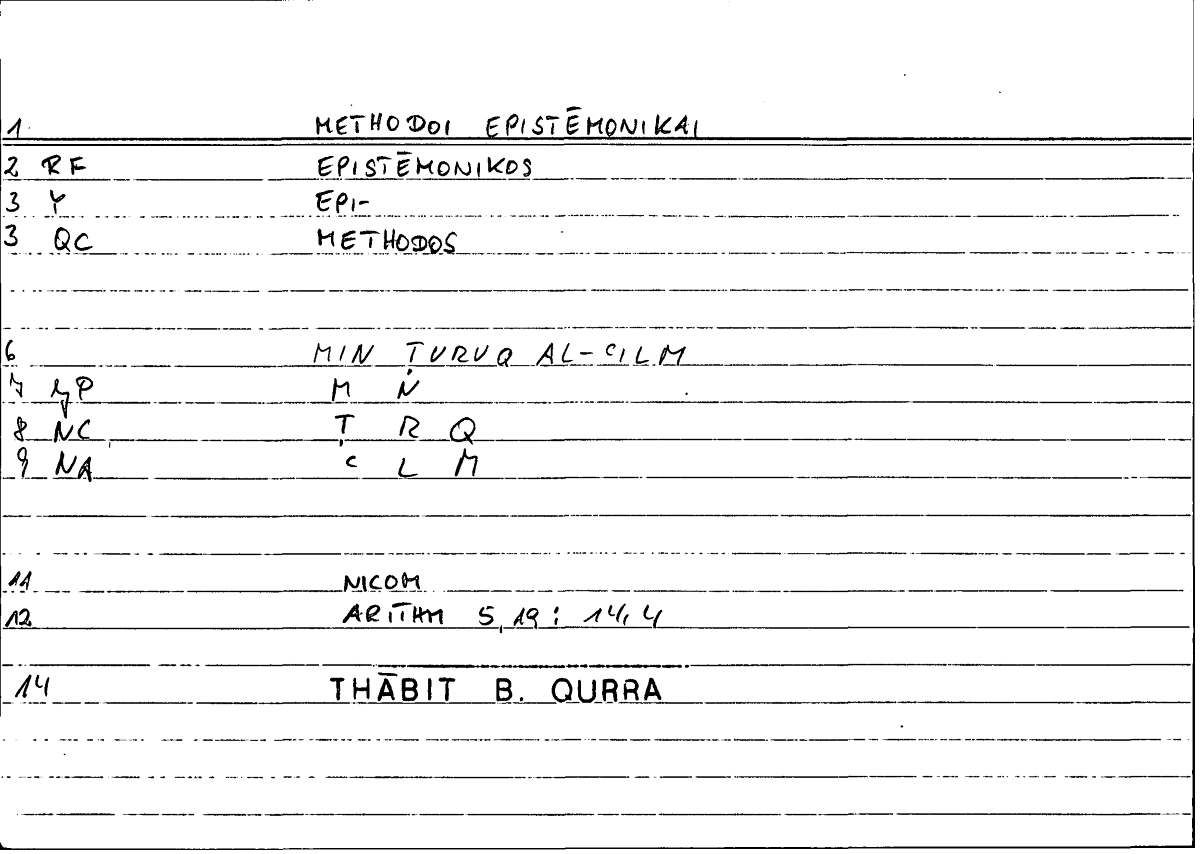 1 METHODOI EPISTĒMONIKAI
2 RF EPISTĒMONIKOS
3 Y EPI-
3 QC METHODOS
6 MIN ṬURUQ AL-ʿILM
7 M N
8 NC Ṭ R Q
9 NA ʿ L M
11 NICOM
12 ARITHM 5,19 : 14,4
14 THĀBIT B. QURRA